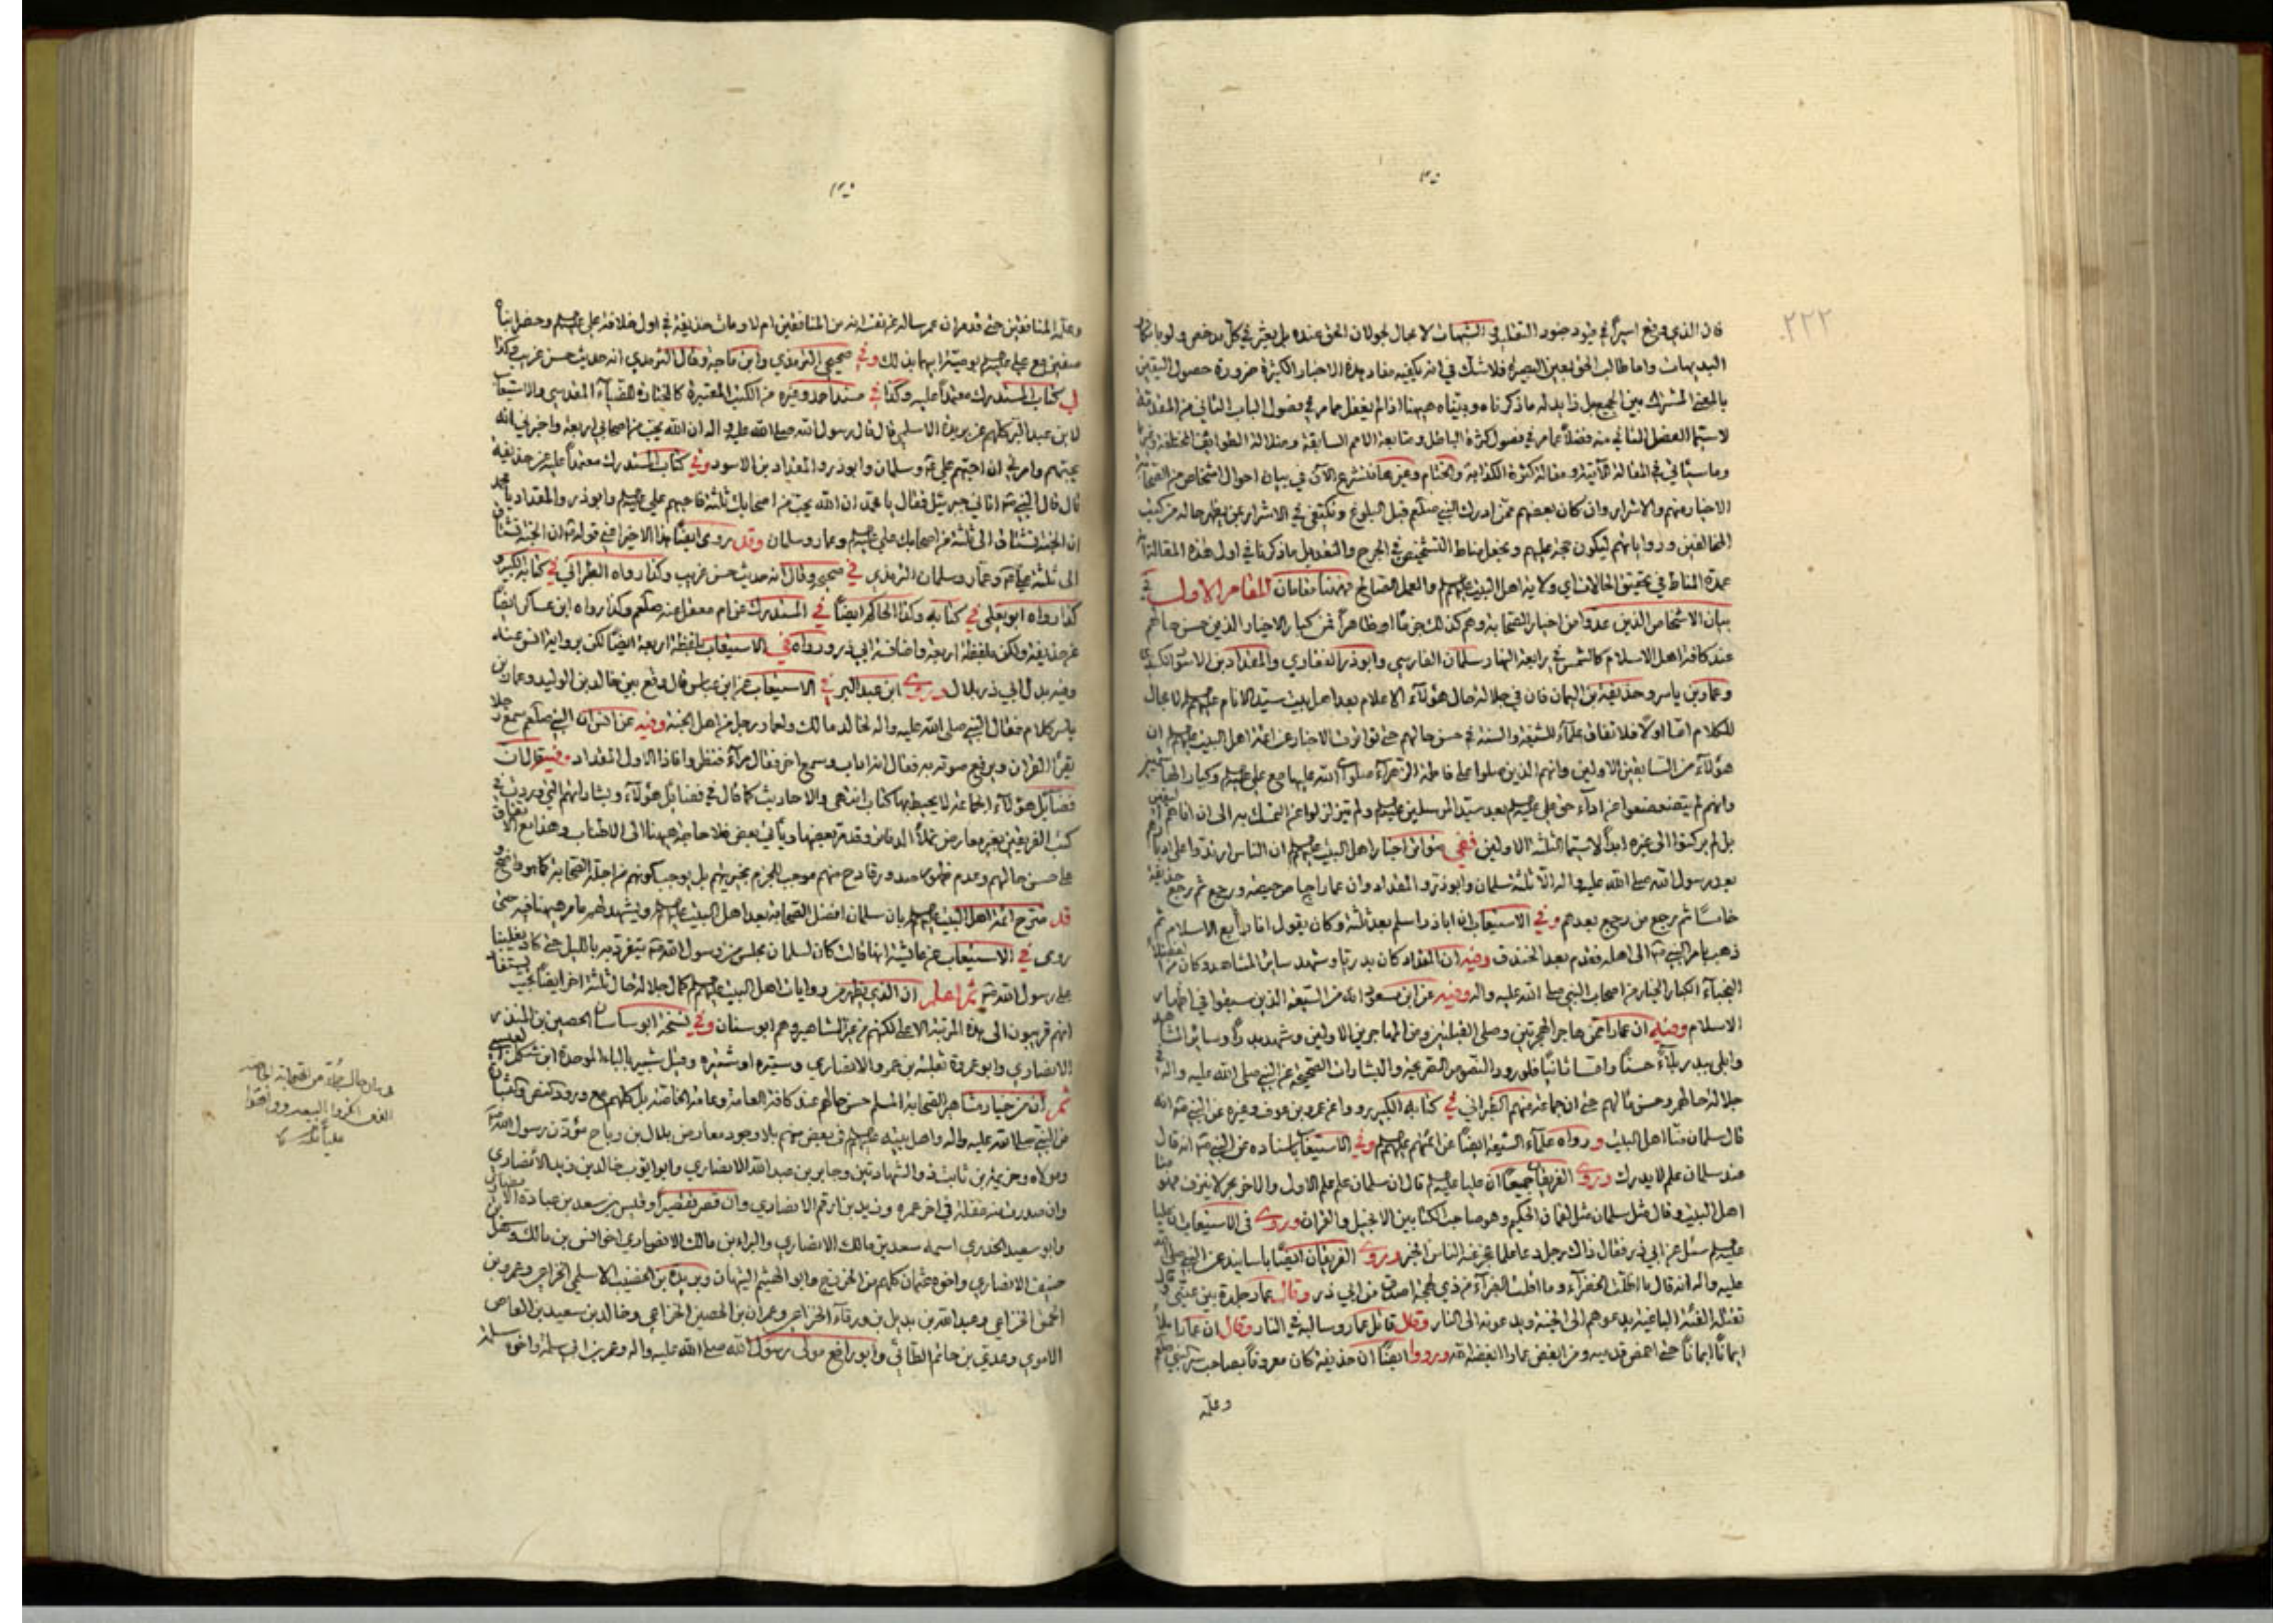 ٢٢٢
فان الذي وقع اسيرا في قيود جنود التقليد في الشبهات لا مجال لجولان الحق عنده بل يعثر في كل مدحض ولو بانكار
البديهيات واما طالب الحق بعين البصيرة فلا شك في انه يكفيه مفاد هذه الاخبار الكثيرة ضرورة حصول اليقين
بالمعنى المشترك بين الجميع بل ذا بدله ما ذكرناه وبيناه ههنا اذا لم يغفل عما مر في فصول الباب الثاني من المقدمة
لا سيما الفصل الثاني منه فضلا عما مر في فصول كثرة الباطل ومتابعة الامم السابقة وضلالة الطوايف المختلفة وغيرها
وما سيأتي في المقالة الآتية ومقالة كثرة الكذابة والختام وغيرها فلنشرع الآن في بيان احوال اشخاص من الصحابة
الاخيار منهم والاشرار وان كان بعضهم ممن ادرك النبي صلعم قبل البلوغ ونكتفي في الاشرار بمن يظهر حاله من كتب
المخالفين ورواياتهم ليكون حجة عليهم ونجعل مناط التشخيص في الجرح والتعديل ما ذكرنا في اول هذه المقالة انه
عمدة المناط في تحقيق الحالات اي ولاية اهل البيت عليهم السلم والعمل الصالح فههنا مقامان المقام الاول في
بيان الاشخاص الذين عدوا من اخيار الصحابة وهم كذلك جزما او ظاهرا فمن كبار الاخيار الذين حسن حالهم
عند كافة اهل الاسلام كالشمس في رابعة النهار سلمان الفارسي وابوذر الغفاري والمقداد بن الاسود الكندي
وعمار بن ياسر وحذيفة بن اليمان فان في جلالة حال هؤلآء الاعلام بعد اهل بيت سيد الانام عليهم السلم لا مجال
للكلام اما اولا فلاتفاق علمآء الشيعة والسنة في حسن حالهم حتى تواترت الاخبار عن ائمة اهل البيت عليهم السلم ان
هؤلآء من السابقين الاولين وانهم الذين صلوا على فاطمة الزهرآء صلوات الله عليها مع علي عليه السلم وكبار الهاشميين
وانهم لم يتضعضعوا عن ادآء حق علي عليه السلم بعد سيد المرسلين ولم يتزلزلوا عن التمسك به الى ان اتاهم اليقين
بل لم يركنوا الى غيره ابدا لا سيما الثلثة الاولين ففي متواتر اخبار اهل البيت عليهم السلم ان الناس ارتدوا على ادبارهم
بعد رسول الله صلى الله عليه واله الا ثلثة سلمان وابوذر والمقداد وان عمارا حاص حيصة ورجع ثم رجع حذيفة
خامسا ثم رجع من رجع بعدهم وفي الاستيعاب ان اباذر اسلم بعد ثلثة وكان يقول انا رابع الاسلام ثم
ذهب بامر النبي صه الى اهله فقدم بعد الخندق وفيه ان المقداد كان بدريا وشهد ساير المشاهد وكان من الفضلاء
النجباء الكبار الخيار من اصحاب النبي صلى الله عليه واله وفيه عن ابن مسعود انه من السبعة الذين سبقوا في اظهار
الاسلام وفيه ان عمارا ممن هاجر الهجرتين وصلى القبلتين ومن المهاجرين الاولين وشهد بدرا وساير المشاهد
وابلى ببدر بلآء حسنا واما ثانيا فلورود النصوص الصريحة والبشارات الصحيحة عن النبي صلى الله عليه واله في
جلالة حالهم وحسن مآلهم حتى ان جماعة منهم الطبراني في كتابه الكبير رووا عن عمرو بن عوف وغيره عن النبي صه انه
قال سلمان منا اهل البيت ورواه علمآء الشيعة ايضا عن ائمتهم عليهم السلم وفي الاستيعاب باسناده عن النبي صه انه قال
عند سلمان علم لا يدرك وروى الفريقان جميعا ان عليا عليه السلم قال ان سلمان علم علم الاول والاخر بحر لا ينزف هو منا
اهل البيت وقال مثل سلمان مثل لقمان الحكيم وهو صاحب الكتابين الانجيل والقران وروى في الاستيعاب ان عليا
عليه السلم سئل عن ابي ذر فقال ذاك رجل وعا علما عجز عنه الناس الخبر وروى الفريقان ايضا باسانيد عن النبي صلى الله
عليه واله انه قال ما اظلت الخضرآء وما اقلت الغبرآء من ذي لهجة اصدق من ابي ذر وقال عمار جلدة بين عيني وقال
تقتله الفئة الباغية يدعوهم الى الجنة ويدعونه الى النار وقال قاتل عمار وسالبه في النار وقال ان عمارا ملأ
ايمانا ايمانا حتى اخمص قدميه ومن ابغض عمارا ابغضه الله ورووا ايضا ان حذيفة كان معروفا بصاحب سر النبي صلعم
وعلمه
وعلمه المنافقين حتى قد مر ان عمر سأله عن نفسه انه من المنافقين ام لا ومات حذيفة في اول خلافة علي عليه السلم وحضر ابناه
صفين مع علي عليه السلم بوصيته اياهما بذلك وفي صحيحي الترمذي وابن ماجة وقال الترمذي انه حديث حسن غريب وكذا
في كتاب المستدرك معتمدا عليه وكذا في مسند احمد وغيره من الكتب المعتبرة كالمختارة للضياء المقدسي والاستيعاب
لابن عبد البر كلهم عن بريدة الاسلمي قال قال رسول الله صلى الله عليه واله ان الله يحب من اصحابي اربعة واخبرني انه
يحبهم وامرني ان احبهم علي صه وسلمان وابوذر والمقداد بن الاسود وفي كتاب المستدرك معتمدا عليه عن حذيفة
قال قال النبي صه اتاني جبرئيل فقال يا محمد ان الله يحب من اصحابك ثلثة فاحبهم علي عليه السلم وابوذر والمقداد يا محمد
ان الجنة تشتاق الى ثلثة من اصحابك علي عليه السلم وعمار وسلمان وقد روى ايضا هذا الاخير اعني قوله ان الجنة تشتاق
الى ثلثة علي وعمار وسلمان الترمذي في صحيحه وقال انه حديث حسن غريب وكذا رواه الطبراني في كتابه الكبير و
كذا رواه ابو يعلى في كتابه وكذا الحاكم ايضا في المستدرك عن ام معقل عنه صلعم وكذا رواه ابن عساكر ايضا
عن حذيفة ولكن بلفظة اربعة واضافة ابي ذر ورواه في الاستيعاب بلفظة اربعة ايضا لكن برواية انس عنه
وفيه بدل ابي ذر بلال وروى ابن عبد البر في الاستيعاب عن ابن عباس قال وقع بين خالد بن الوليد وعمار بن
ياسر كلام فقال النبي صلى الله عليه واله لخالد مالك ولعمار رجل من اهل الجنة وفيه عن انس ان النبي صلعم سمع رجلا
يقرأ القران ويرفع صوته به فقال انه اواب وسمع اخر فقال مرآء فنظروا فاذا الاول المقداد وفيه قال ان
فضايل هؤلآء الجماعة لا يحيط بها كتاب انتهى والاحاديث كما قال في فضايل هؤلآء وبشاراتهم التي وردت في
كتب الفريقين بغير معارض تملأ الدفاتر وقد مر بعضها ويأتي بعض فلا حاجة ههنا الى الاطناب وهذا مع الاتفاق
على حسن حالهم وعدم ظهور صدور قادح منهم موجب للجزم بخيريتهم بل يوجب كونهم من اجلة الصحابة كما هو واضح و
قد صرح ائمة اهل البيت عليهم السلم بان سلمان افضل الصحابة بعد اهل البيت عليهم السلم ويشهد لهم ما مر ههنا فيه حتى
روى في الاستيعاب عن عائشة انها قالت كان لسلمان مجلس من رسول الله صه يتفرد به بالليل حتى كاد يغلبنا
على رسول الله صه ثم اعلم ان الذي يظهر من روايات اهل البيت عليهم السلم كمال جلالة حال ثلثة اخر ايضا بحيث يستفاد
انهم قريبون الى هذه المرتبة الاعلى لكنهم من غير المشاهير وهم ابو سنان وفي نسخة ابو ساسان الحصين بن المنذر
الانصاري وابو عمرة ثعلبة بن عمرو الانصاري وستيره او شتيره وقيل شبير بالباء الموحدة ابن شكل العبسي
ثم ان من خيار مشاهير الصحابة المسلم حسن حالهم عند كافة العامة وعامة الخاصة بل كلهم مع ورود
من النبي صلى الله عليه واله واهل بيته عليهم السلم في بعض منهم بلا وجود معارض بلال بن رباح مؤذن رسول الله
ومولاه وخزيمة بن ثابت ذو الشهادتين وجابر بن عبد الله الانصاري وابو ايوب خالد بن زيد الانصاري
وان صدرت منه غفلة في اخر عمره وزيد بن ارقم الانصاري وان قصر تقصيرا وقيس بن سعد بن عبادة الانصاري
وابو سعيد الخدري اسمه سعد بن مالك الانصاري والبراء بن مالك الانصاري اخو انس بن مالك وسهل بن
حنيف الانصاري واخوه عثمان كلهم من الخزرج وابو الهيثم التيهان وبريدة بن الخضيب الاسلمي الخزاعي وعمرو بن
الحمق الخزاعي وعبد الله بن بديل بن ورقاء الخزاعي وعمران بن الحصين الخزاعي وخالد بن سعيد بن العاص
الاموي وعدي بن حاتم الطائي وابو رافع مولى رسول الله صلى الله عليه واله وعمر بن ابي سلمة واخوه سلمة
من الصحابة